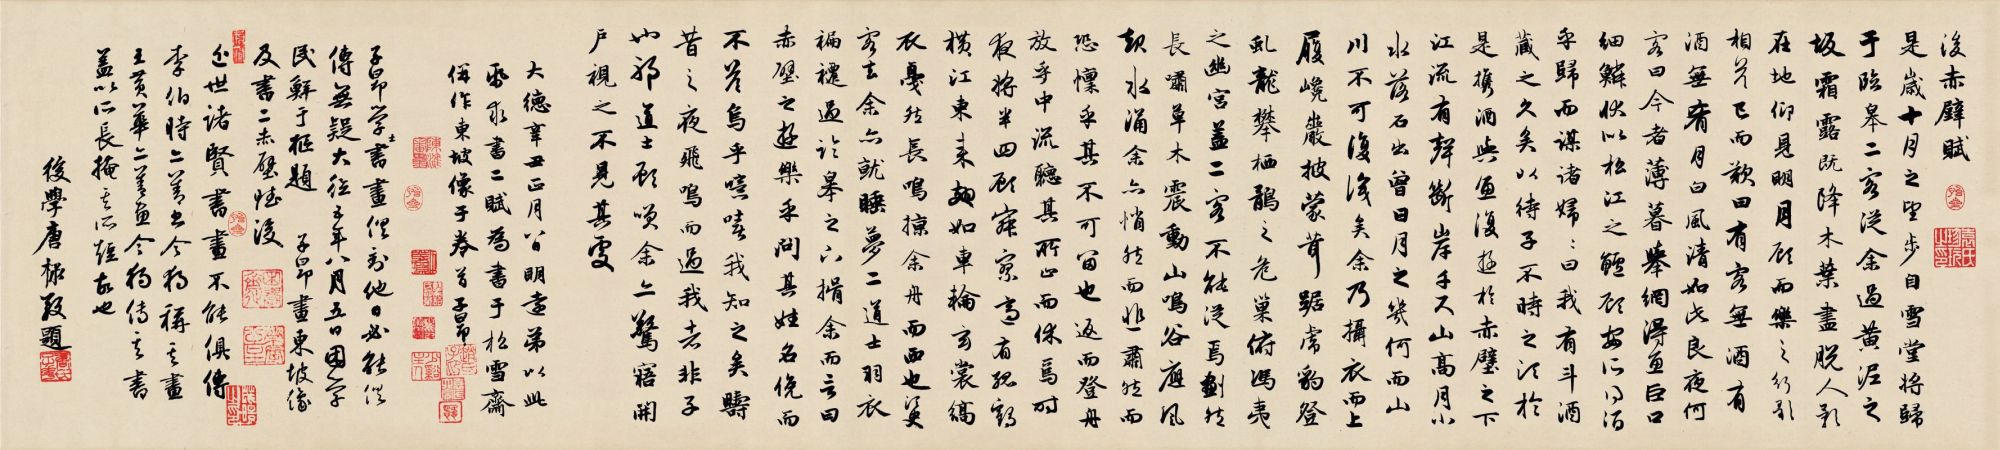 後赤壁賦
是歲十月之望步自雪堂將歸
于臨皋二客從余過黃泥之
坂霜露既降木葉盡脫人影
在地仰見明月顧而樂之行歌
相答已而歎曰有客無酒有
酒無肴月白風清如此良夜何
客曰今者薄暮舉網得魚巨口
細鱗狀似松江之鱸顧安所得酒
乎歸而謀諸婦〻曰我有斗酒
藏之久矣以待子不時之須於
是攜酒與魚復遊於赤壁之下
江流有聲斷岸千尺山高月小
水落石出曾日月之幾何而山
川不可復識矣余乃攝衣而上
履巉巖披蒙茸踞虎豹登
虬龍攀栖鶻之危巢俯馮夷
之幽宮蓋二客不能從焉劃然
長嘯草木震動山鳴谷應風
起水涌余亦悄然而悲肅然而
恐懍乎其不可留也返而登舟
放乎中流聽其所止而休焉時
夜將半四顧寂寥適有孤鶴
橫江東來翅如車輪玄裳縞
衣戛然長鳴掠余舟而西也臾
客去余亦就睡夢二道士羽衣
褊褼過臨皋之下揖余而言曰
赤壁之遊樂乎問其姓名俛而
不答烏乎噫嘻我知之矣疇
昔之夜飛鳴而過我者非子
也邪道士顧笑余亦驚寤開
戶視之不見其處
大德辛丑正月八日明遠弟以此
紙求書二賦為書于松雪齋
併作東坡像于卷首子昂
子昂學士書畫俱到他日必能俱
傳無疑大德五年八月五日困學
民鮮于樞題 子昂畫東坡像
及書二赤壁於後
近世諸賢書畫不能俱傳
李伯時亦善書今獨稱其畫
王黃華亦善畫今獨傳其書
蓋以所長掩其所短故也
後學唐棣敬題